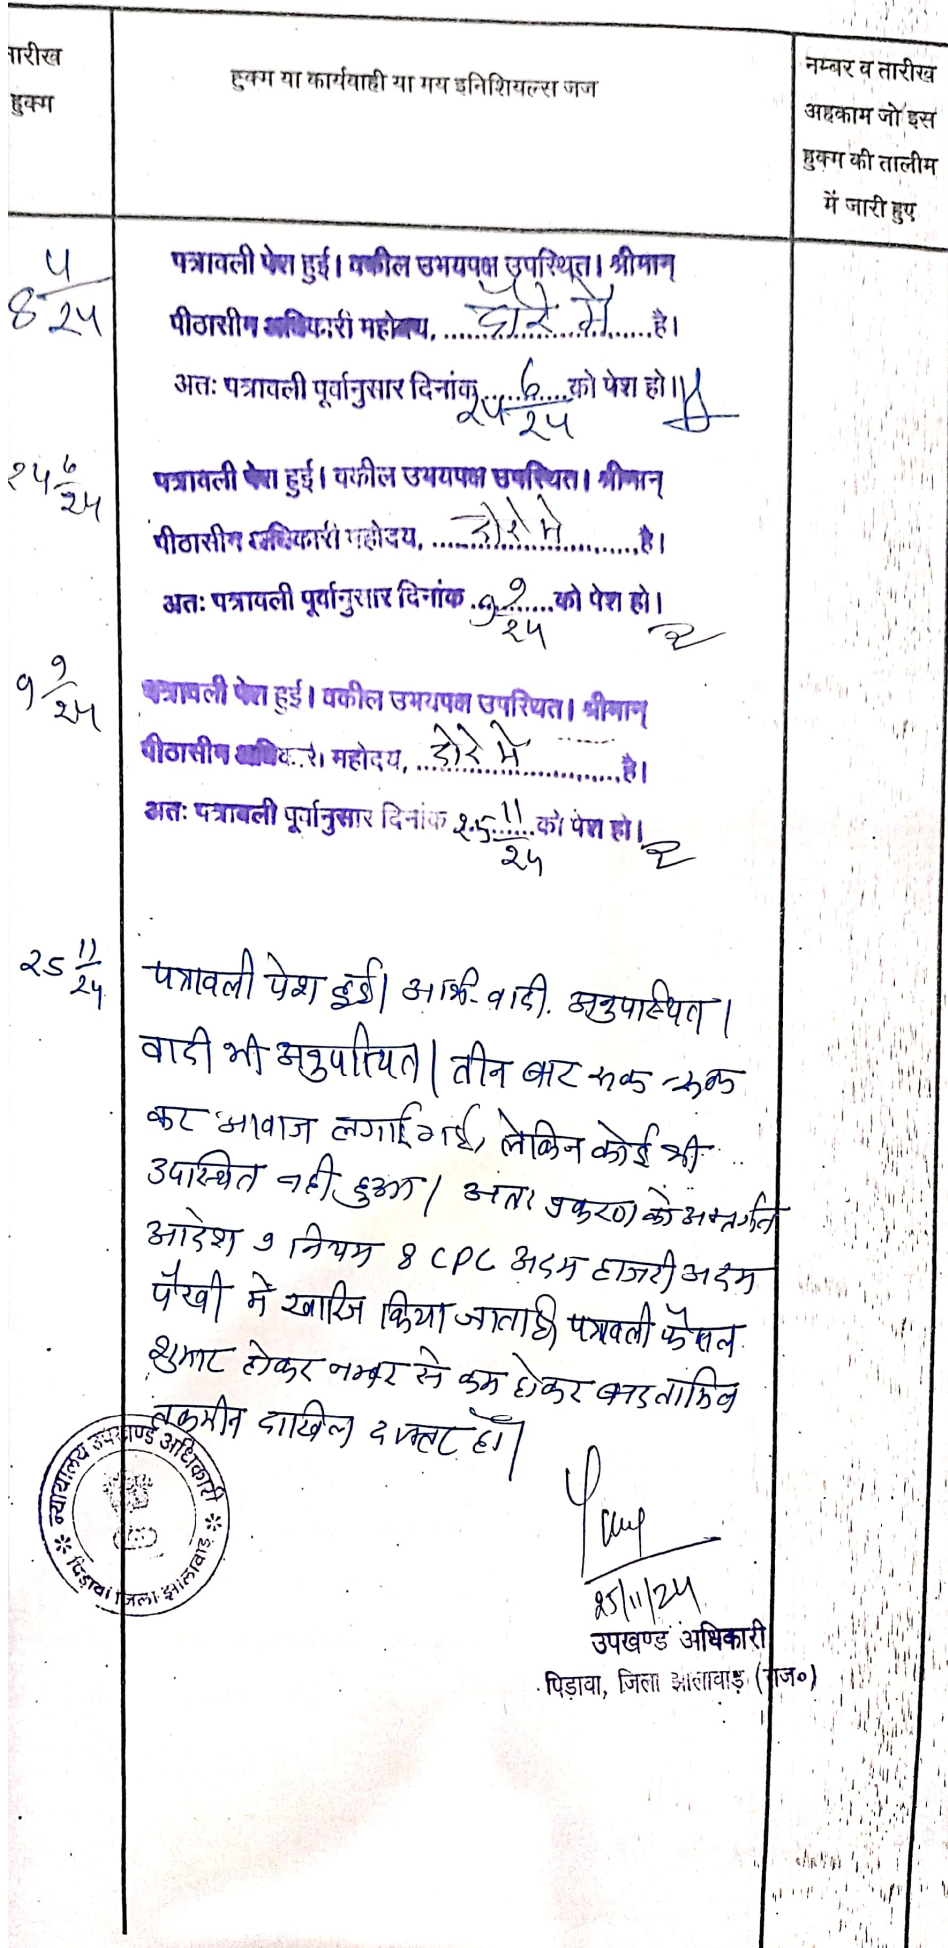 तारीख
हुक्म
हुक्म या कार्यवाही या मय इनिशियल्स जज
नम्बर व तारीख
अहकाम जो इस
हुक्म की तालीम
में जारी हुए
8 4/24
पत्रावली पेश हुई। वकील उभयपक्ष उपस्थित। श्रीमान्
पीठासीन अधिकारी महोदय, दौरे में है।
अतः पत्रावली पूर्वानुसार दिनांक 24 6/24 को पेश हो।
24 6/24
पत्रावली पेश हुई। वकील उभयपक्ष उपस्थित। श्रीमान्
पीठासीन अधिकारी महोदय, दौरे मे है।
अतः पत्रावली पूर्वानुसार दिनांक 9 9/24 को पेश हो।
9 9/24
पत्रावली पेश हुई। वकील उभयपक्ष उपस्थित। श्रीमान्
पीठासीन अधिकारी महोदय, दोरे मे है।
अतः पत्रावली पूर्वानुसार दिनांक 25 11/24 को पेश हो।
25 11/24
पत्रावली पेश हुई। अभि. वादी. अनुपस्थित।
वादी भी अनुपस्थित। तीन बार रूक-रूक
कर आवाज लगाई गई, लेकिन कोई भी
उपस्थित नही हुआ। अतः प्रकरण को अन्तर्गत
आदेश 9 नियम 8 CPC अदम हाजरी अदम
पैरवी मे खारिज किया जाता है। पत्रावली फैसल
शुमार होकर नम्बर से कम होकर बाद तामिल
तकमील दाखिल दफ्तर हो।
न्यायालय उपखण्ड अधिकारी
पिड़ावा जिला झालावाड़
25/11/24
उपखण्ड अधिकारी
पिड़ावा, जिला झालावाड़ (राज०)